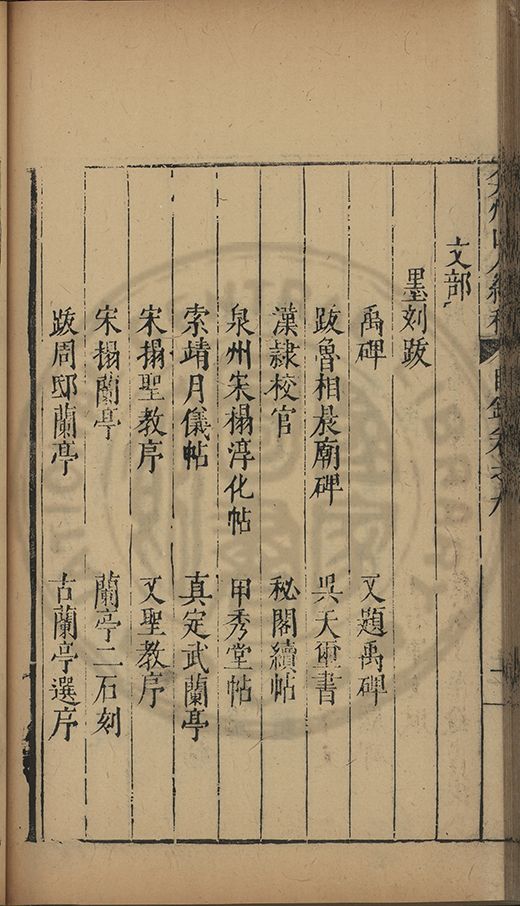 弇州山人續稿 目錄卷之九
文部
墨刻跋
禹碑 又題禹碑
跋魯相晨廟碑 吳天璽書
漢隸校官 秘閣續帖
泉州宋搨淳化帖 甲秀堂帖
索靖月儀帖 真定武蘭亭
宋搨聖教序 又聖教序
宋搨蘭亭 蘭亭二石刻
跋周邸蘭亭 古蘭亭選序